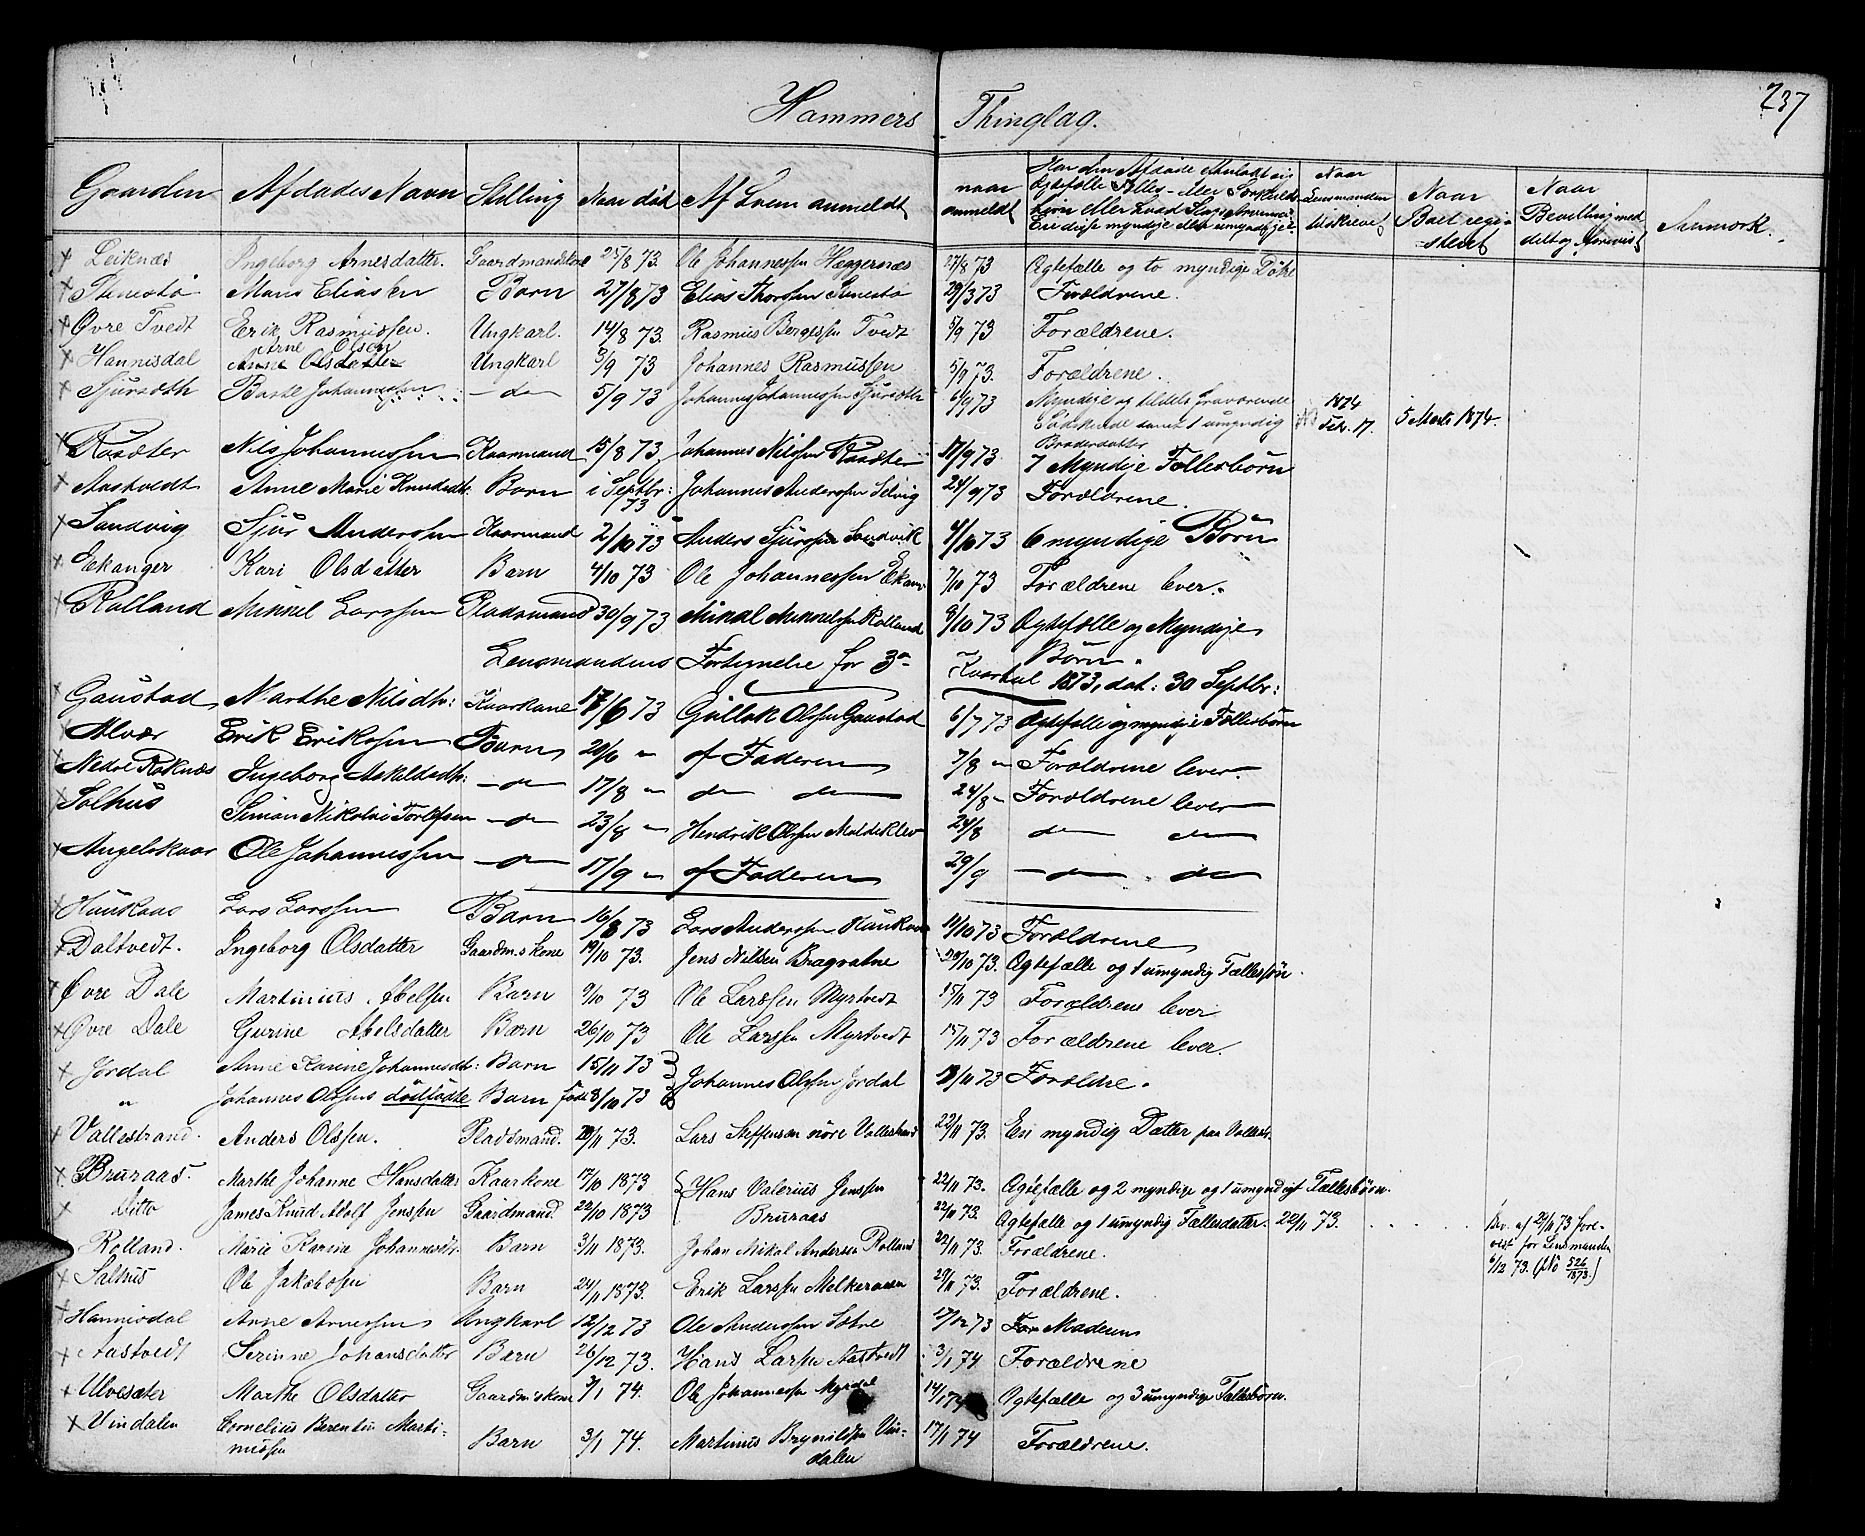 237
Hammers Thinglag.
Gaarden Afdødes Navn Stilling Naar død Af hvem anmeldt naar anmeldt Har den Afdøde efterladt sig Ægtefælle Fælles- eller Særkuld- børn eller hvad Slags Arvinger Ere disse myndige eller umyndige? Naar Lensmanden tilskrevet Naar Boet regi- streret Naar Bevilling med- delt og forevist Anmærk.
Leiknæs Ingeborg Arnesdatter. Gaardmandskone 25/8 73. Ole Johannessen Hæggernæs 27/8 73 Ægtefælle og to myndige Døtre
Mons Eliassen Barn 27/8 73 Elias Thorsen 29/3 73 Forældrene.
Øvre Tvedt Erik Rasmussen. Ungkarl. 14/8 73. Rasmus Børgessen Tvedt 5/9 73 Forældrene.
Arne Olsen
Hannisdal Anna Olsdatter Ungkarl 3/9 73 Johannes Rasmussen 5/9 73. Forældrene.
Sjursæth Johannessen — do 5/9 73 Johannes Johannessen Sjursæth 6/9 73 Myndige og tildels fraværende
Södskende samt 1 umyndig 1874 Febr. 17. 5 Marts 1874.
Broderdatter
Nils Johannessen Kaarmand 15/8 73 Johannes Nilssen 11/9 73 7 Myndige Fællesbørn
Aastvedt Anne Marie Knudsdtr. Barn i Septbr: 73 Johannes Anderssen Selvig 24/9 73 Forældrene.
Sandvig Sjur Anderssen Kaarmand 2/10 73 Anders Sjurssen Sandvik 4/10 73 6 myndige Børn
Eikanger Kari Olsdatter Barn 4/10 73 Ole Johannessen Eikan- 7/10 73 Forældrene lever.
Rolland Mikkel Larssen Pladsmand 30/9 73 Mikal Mikkelsen Rolland 8/10 73 Ægtefælle og Myndige
Børn.
Lensmandens Fortegnelse for 3die Kvartal 1873, dat: 30 Septbr:
Gaustad Marthe Nilsdtr: Kaarkone 17/6 73 Gullak Olssen Gaustad 6/7 73 Ægtefælle og myndige Fællesbørn
Alvær Erik Erikssen Barn 20/6 " af Faderen 7/8 " Forældrene lever.
Nedre Røknæs Ingeborg Askildsdtr: — do 17/8 " do do 24/8 " Forældrene lever
Solhus Simon Nikolai Torlefsen — do 23/8 " Hendrik Olssen Moldeklev 24/8 do do
Angelskaar Ole Johannessen — do 17/9 " af Faderen 29/9 — do do
Haukaas Lars Larssen Barn 16/8 73 Lars Anderssen Haukaas 14/10 73 Forældrene
Daltvedt. Ingeborg Olsdatter Gaardm.skone 19/10 73. Jens Nilsen Bragvatne 20/10 73. Ægtefælle og 1 umyndig Fællessøn.
Øvre Dale Martinius Abelsen Barn 9/10 73 Ole Larssen Myrtvedt 15/11 73 Forældrene lever
Øvre Dale Gurine Abelsdatter Barn 26/10 73 Ole Larssen Myrtvedt 15/11 73 Forældrene lever.
Jordal Anne Karine Johannesdt: Barn 15/11 73 Johannes Olssen Jordal 18/11 73 Forældre.
" Johannes Olssens dødfødte Barn født 8/10 73
Vallestrand. Anders Olssen. Pladsmand. 20/11 73. Lars Steffensen nøre Vallestrand 22/11 73. En myndig Datter paa Vallest.
Bruraas. Marthe Johanne Hansdatter Kaarkone 17/10 1873 Hans Valerius Jenssen 22/11 73. Ægtefælle og 2 myndige og 1 umyndigt Fællesbørn.
Ditto James Knud Adolf Jenssen Gaardmand. 22/10 1873 Bruraas 22/11 73. Ægtefælle og 1 umyndig Fællesdatter. 22/11 73. Bev. af 29/11 73 fore-
vist for Lensmanden
6/12 73. (No 526/1873.)
Rolland. Marie Karine Johannesdtr. Barn 3/11 1873. Johan Mikal Andersen Rolland 22/11 73. Forældrene.
Salhus Ole Jakobssen Barn 24/11 1873. Erik Larssen Melkeraaen 29/11 73. Forældrene.
Hannisdal Arne Arnessen Ungkarl 12/12 73 Ole Anderssen Sætre 17/12 73 For Moderen
Aastvedt Serinne Johansdatter Barn 26/12 73. Hans Larsen Aastvedt 3/1 74 Forældrene
Ulvesæter Marthe Olsdatter Gaardm.skone 3/1 74. Ole Johannessen Myrdal 14/1 74 Ægtefælle og 3 umyndige Fællesbørn.
Vindalen Cornelius Berentin Marti-
nussen Barn 3/1 74. Martinus Brynildsen Vin-
dalen 17/1 74 Forældrene.